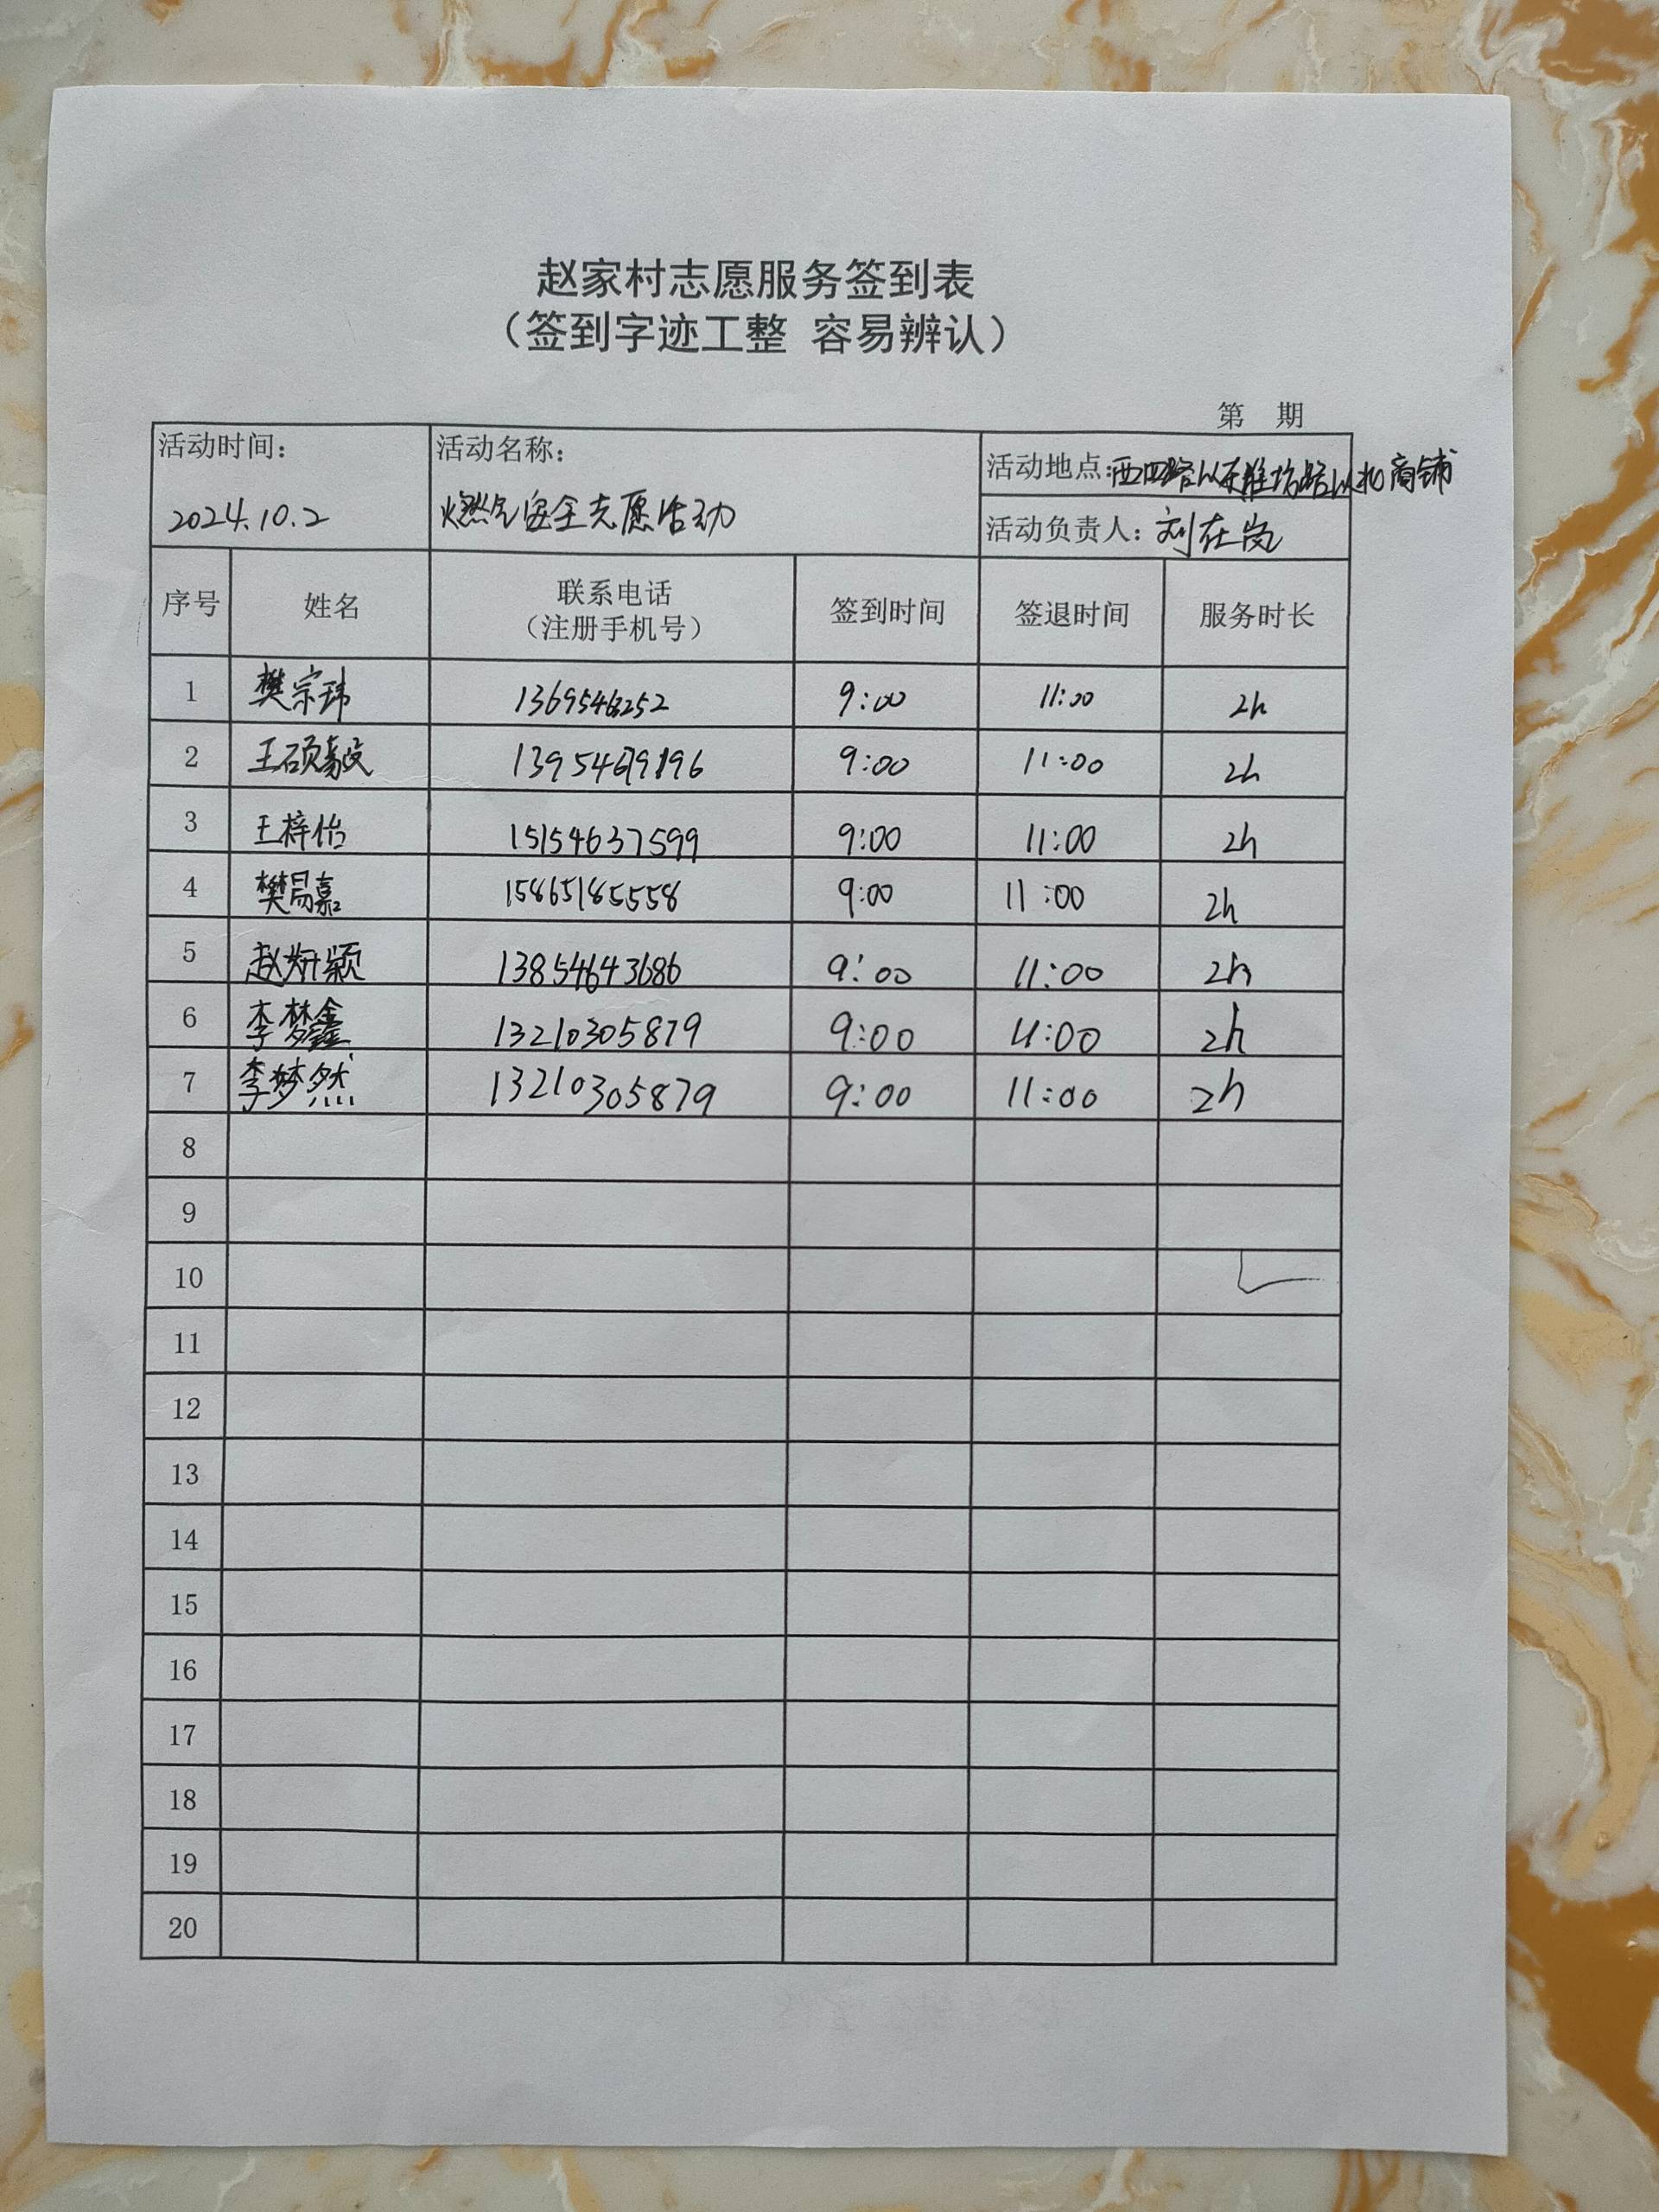 赵家村志愿服务签到表
（签到字迹工整 容易辨认）
第 期
活动时间：
2024.10.2
活动名称：
燃气安全志愿活动
活动地点：西四路以东潍坊路以北商铺
活动负责人：刘在岚
序号 姓名 联系电话（注册手机号） 签到时间 签退时间 服务时长
1 樊宗玮 9:00 11:00 2h
2 王硕毅 9:00 11:00 2h
3 王梓怡 15154637599 9:00 11:00 2h
4 樊昌嘉 15865185558 9:00 11:00 2h
5 赵妍颖 13854643686 9:00 11:00 2h
6 李梦鑫 13210305879 9:00 11:00 2h
7 李梦然 13210305879 9:00 11:00 2h
8
9
10
11
12
13
14
15
16
17
18
19
20